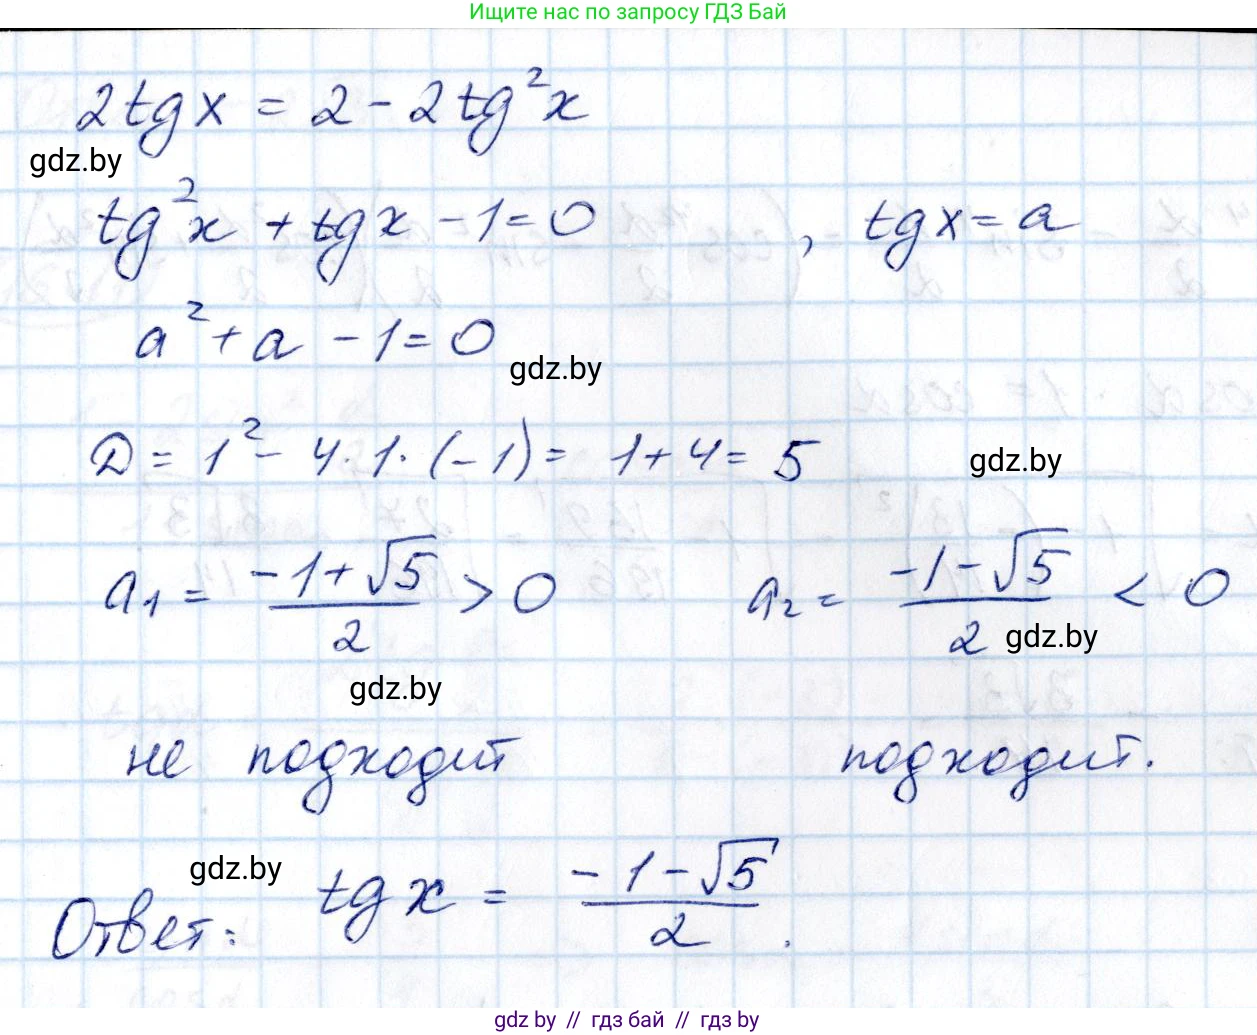 Ищите нас по запросу ГДЗ Бай
2tgx = 2 - 2tg²x
gdz.by
tg²x + tgx - 1 = 0 , tgx = a
a² + a - 1 = 0
gdz.by
D = 1² - 4 · 1 · (-1) = 1 + 4 = 5
gdz.by
a₁ = (-1 + √5)/2 > 0 a₂ = (-1 - √5)/2 < 0
gdz.by
gdz.by
не подходит подходит.
gdz.by
Ответ: tgx = (-1 - √5)/2.
gdz by // гдз бай // гдз by